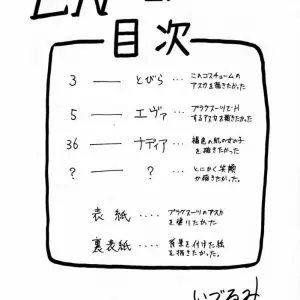 目次
3 ―― とびら … このコスチュームの
アスカを描きたかった
5 ―― エヴァ … プラグスーツでH
するアスカを描きたかった
36 ―― ナディア … 褐色の肌の女の子
を描きたかった。
? ―― ? … とにかく笑顔
が描きたかった。
表紙 …… プラグスーツのアスカ
を塗りたかった
裏表紙 …… 背景を付けた絵
を描きたかった。
いづるみ